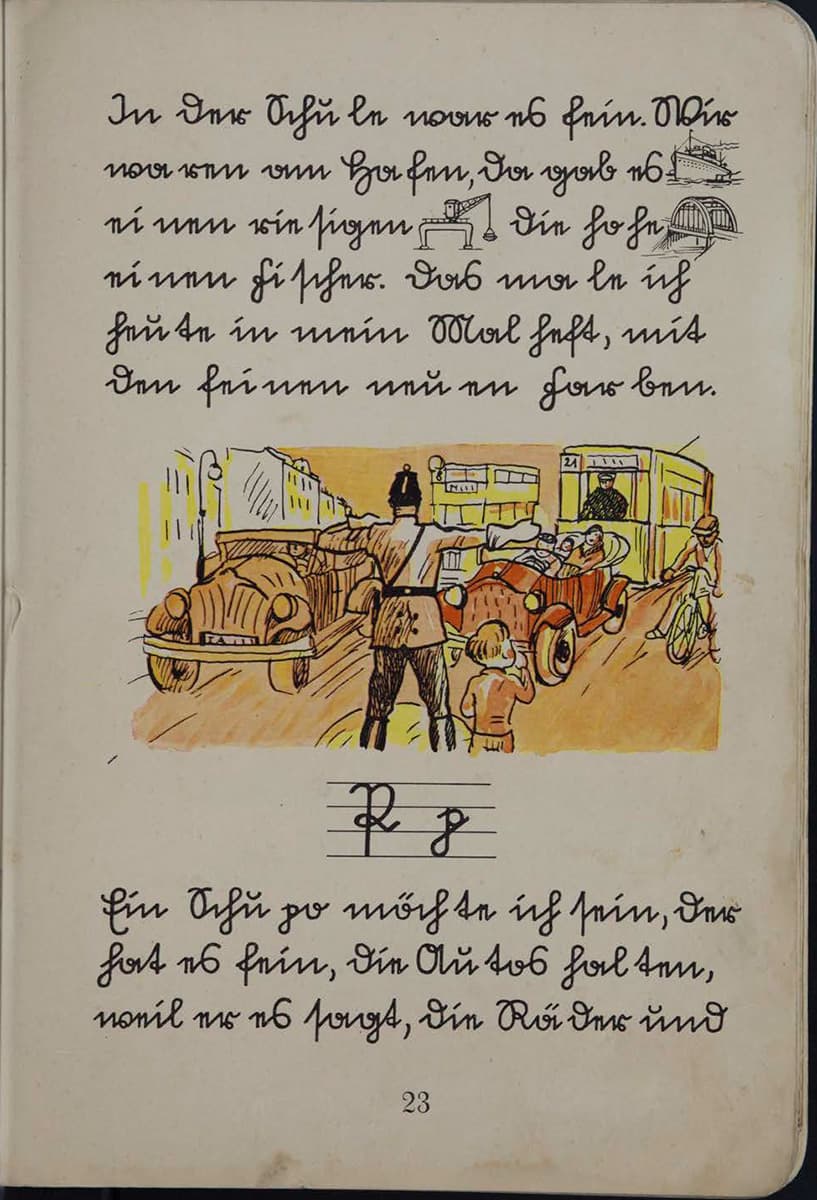 In der Schu le war es fein. Wir
wa ren am Ha fen, da gab es
ei nen rie sigen die ho he
einen Fi scher. Das ma le ich
heu te in mein Mal heft, mit
den fei nen neu en Far ben.
21
P p
Ein Schu po möch te ich sein, der
hat es fein, die Au tos hal ten,
weil er es sagt, die Rä der und
23